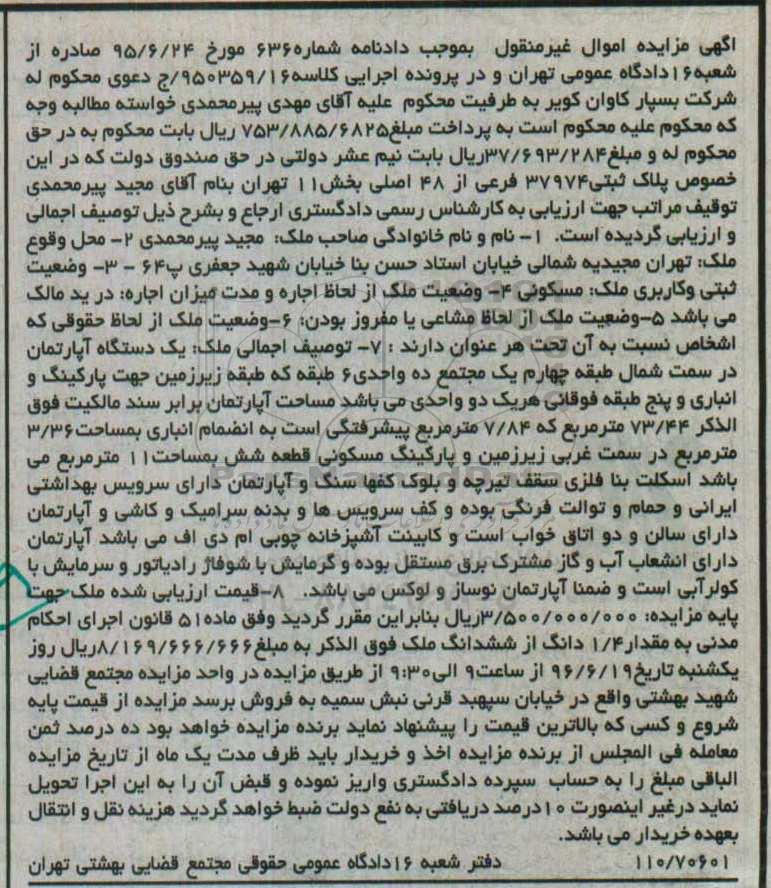 آگهی مزایده اموال غیرمنقول بموجب دادنامه شماره۶۳۶ مورخ ۹۵/۶/۲۴ صادره از
شعبه۱۶دادگاه عمومی تهران و در پرونده اجرایی کلاسه۹۵۰۳۵۹/۱۶/ج دعوی محکوم له
شرکت بسپار کاوان کویر به طرفیت محکوم علیه آقای مهدی پیرمحمدی خواسته مطالبه وجه
که محکوم علیه محکوم است به پرداخت مبلغ۷۵۳/۸۸۵/۶۸۲۵ ریال بابت محکوم به در حق
محکوم له و مبلغ۳۷/۶۹۳/۲۸۴ریال بابت نیم عشر دولتی در حق صندوق دولت که در این
خصوص پلاک ثبتی۳۷۹۷۴ فرعی از ۴۸ اصلی بخش۱۱ تهران بنام آقای مجید پیرمحمدی
توقیف مراتب جهت ارزیابی به کارشناس رسمی دادگستری ارجاع و بشرح ذیل توصیف اجمالی
و ارزیابی گردیده است. ۱- نام و نام خانوادگی صاحب ملک: مجید پیرمحمدی ۲- محل وقوع
ملک: تهران مجیدیه شمالی خیابان استاد حسن بنا خیابان شهید جعفری پ۶۴ - ۳- وضعیت
ثبتی وکاربری ملک: مسکونی ۴- وضعیت ملک از لحاظ اجاره و مدت میزان اجاره: در ید مالک
می باشد ۵-وضعیت ملک از لحاظ مشاعی یا مفروز بودن: ۶-وضعیت ملک از لحاظ حقوقی که
اشخاص نسبت به آن تحت هر عنوان دارند : ۷- توصیف اجمالی ملک: یک دستگاه آپارتمان
در سمت شمال طبقه چهارم یک مجتمع ده واحدی۶ طبقه که طبقه زیرزمین جهت پارکینگ و
انباری و پنج طبقه فوقانی هریک دو واحدی می باشد مساحت آپارتمان برابر سند مالکیت فوق
الذکر ۷۳/۴۴ مترمربع که ۷/۸۴ مترمربع پیشرفتگی است به انضمام انباری بمساحت۳/۳۶
مترمربع در سمت غربی زیرزمین و پارکینگ مسکونی قطعه شش بمساحت۱۱ مترمربع می
باشد اسکلت بنا فلزی سقف تیرچه و بلوک کفها سنگ و آپارتمان دارای سرویس بهداشتی
ایرانی و حمام و توالت فرنگی بوده و کف سرویس ها و بدنه سرامیک و کاشی و آپارتمان
دارای سالن و دو اتاق خواب است و کابینت آشپزخانه چوبی ام دی اف می باشد آپارتمان
دارای انشعاب آب و گاز مشترک برق مستقل بوده و گرمایش با شوفاژ رادیاتور و سرمایش با
کولرآبی است و ضمنا آپارتمان نوساز و لوکس می باشد. ۸-قیمت ارزیابی شده ملک جهت
پایه مزایده: ۳/۵۰۰/۰۰۰/۰۰۰ریال بنابراین مقرر گردید وفق ماده۵۱ قانون اجرای احکام
مدنی به مقدار۱/۴ دانگ از ششدانگ ملک فوق الذکر به مبلغ۸/۱۶۹/۶۶۶/۶۶۶ریال روز
یکشنبه تاریخ۹۶/۶/۱۹ از ساعت۹ الی۹:۳۰ از طریق مزایده در واحد مزایده مجتمع قضایی
شهید بهشتی واقع در خیابان سپهبد قرنی نبش سمیه به فروش برسد مزایده از قیمت پایه
شروع و کسی که بالاترین قیمت را پیشنهاد نماید برنده مزایده خواهد بود ده درصد ثمن
معامله فی المجلس از برنده مزایده اخذ و خریدار باید ظرف مدت یک ماه از تاریخ مزایده
الباقی مبلغ را به حساب سپرده دادگستری واریز نموده و قبض آن را به این اجرا تحویل
نماید درغیر اینصورت ۱۰درصد دریافتی به نفع دولت ضبط خواهد گردید هزینه نقل و انتقال
بعهده خریدار می باشد.
۱۱۰/۷۰۶۰۱ دفتر شعبه ۱۶دادگاه عمومی حقوقی مجتمع قضایی بهشتی تهران